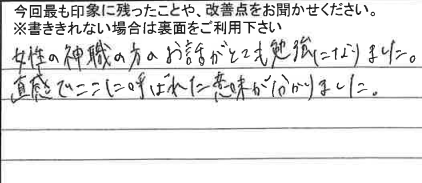 今回最も印象に残ったことや、改善点をお聞かせください。
※書ききれない場合は裏面をご利用下さい
女性の神職の方のお話がとても勉強になりました。
直感でここに呼ばれた意味が分かりました。